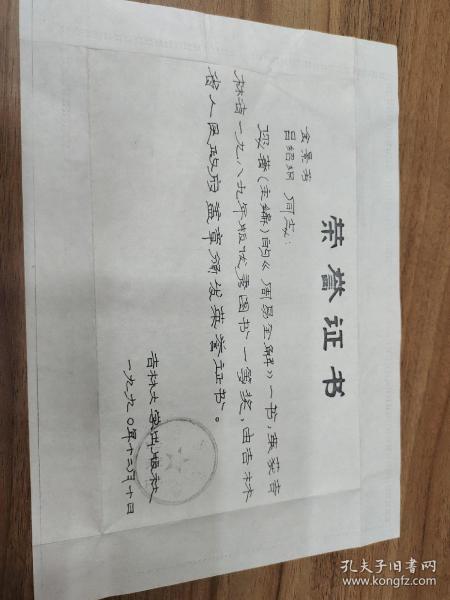 荣誉证书
金景芳
吕绍纲 同志：
您著（主编）的《周易全解》一书，荣获吉
林省一九八九年版优秀图书一等奖，由吉林
省人民政府盖章颁发荣誉证书。
吉林大学出版社
一九九〇年十二月十日
孔夫子旧书网
www.kongfz.com